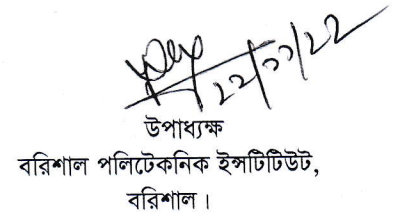 ২২/১১/২২
উপাধ্যক্ষ
বরিশাল পলিটেকনিক ইন্সটিটিউট,
বরিশাল।